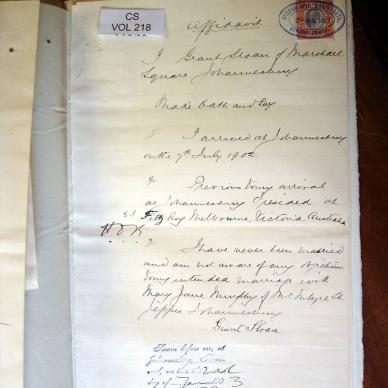 CS
VOL 218
Affidavit
I Grant Sloan of Marshall
Square Johannesburg
Make Oath and Say
1 I arrived at Johannesburg
on the 7th July 1902.
2 Previous to my arrival
at Johannesburg I resided at
Fitz Roy Melbourne, Victoria, Australia
3 I have never been married
and am not aware of any objection
to my intended marriage with
Mary Jane Murphy of McIntyre St
Jeppes Johannesburg
Grant Sloan
Sworn before me, at
Johannesburg
on this 2nd
day of 3